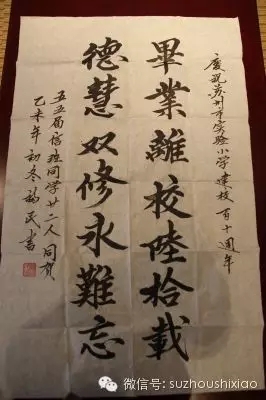 慶祝苏州市实验小学建校百十週年
畢業離校陸拾載
德慧双修永難忘
五五届信班同学廿二人同賀
乙未年初冬 民书
微信号: suzhoushixiao